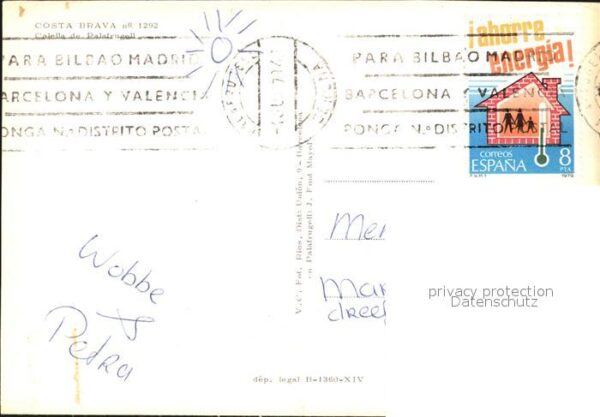 COSTA BRAVA nº 1292
Calella de Palafrugell
PARA BILBAO MADRID
BARCELONA Y VALENCIA
PONGA N.º DISTRITO POSTAL
PARA BILBAO MADRID
BARCELONA Y VALENCIA
PONGA N.º DISTRITO POSTAL
¡ahorre
energía!
correos
ESPAÑA
8
PTA
1979
V. C. Fot. Ríos, Dist: Unión, 9 -
en Palafrugell: J. Font
Wobbe
&
Petra
privacy protection
Datenschutz
dép. legal B-1360-XIV